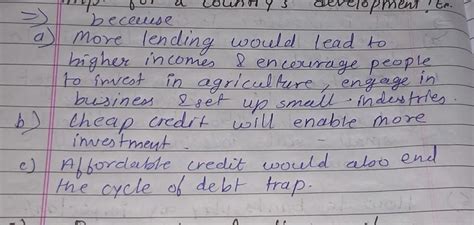 for a country's development? Ex.
=> because
a) More lending would lead to
higher incomes & encourage people
to invest in agriculture, engage in
business & set up small-industries.
b) Cheap credit will enable more
investment.
c) Affordable credit would also end
the cycle of debt trap.